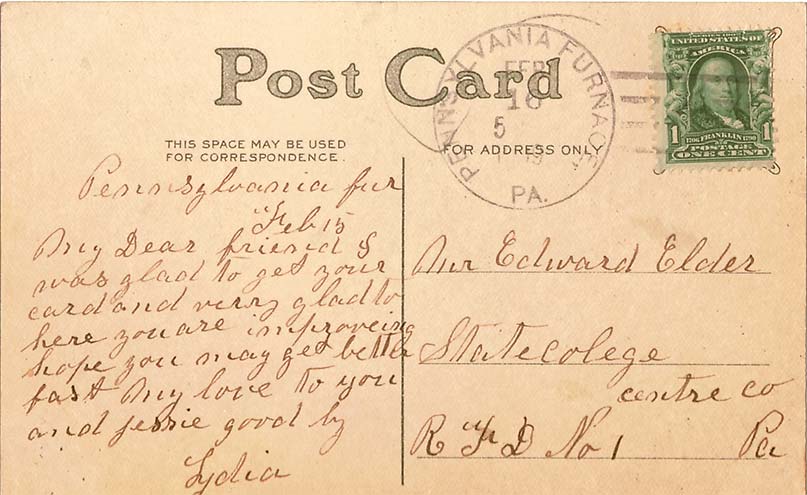 Post Card
THIS SPACE MAY BE USED
FOR CORRESPONDENCE.
FOR ADDRESS ONLY
PENNSYLVANIA FURNACE
FEB
16
5
PA.
UNITED STATES OF
AMERICA
1 1706 FRANKLIN 1790 1
POSTAGE
ONE CENT
Pennsylvania fur
Feb 15
My Dear friend I
was glad to get your
card and verry glad to
here you are improveing
hope you may get better
fast My love to you
and jessie good by
Lydia
Mr Edward Elder
State colege
centre co
R F D No 1 Pa